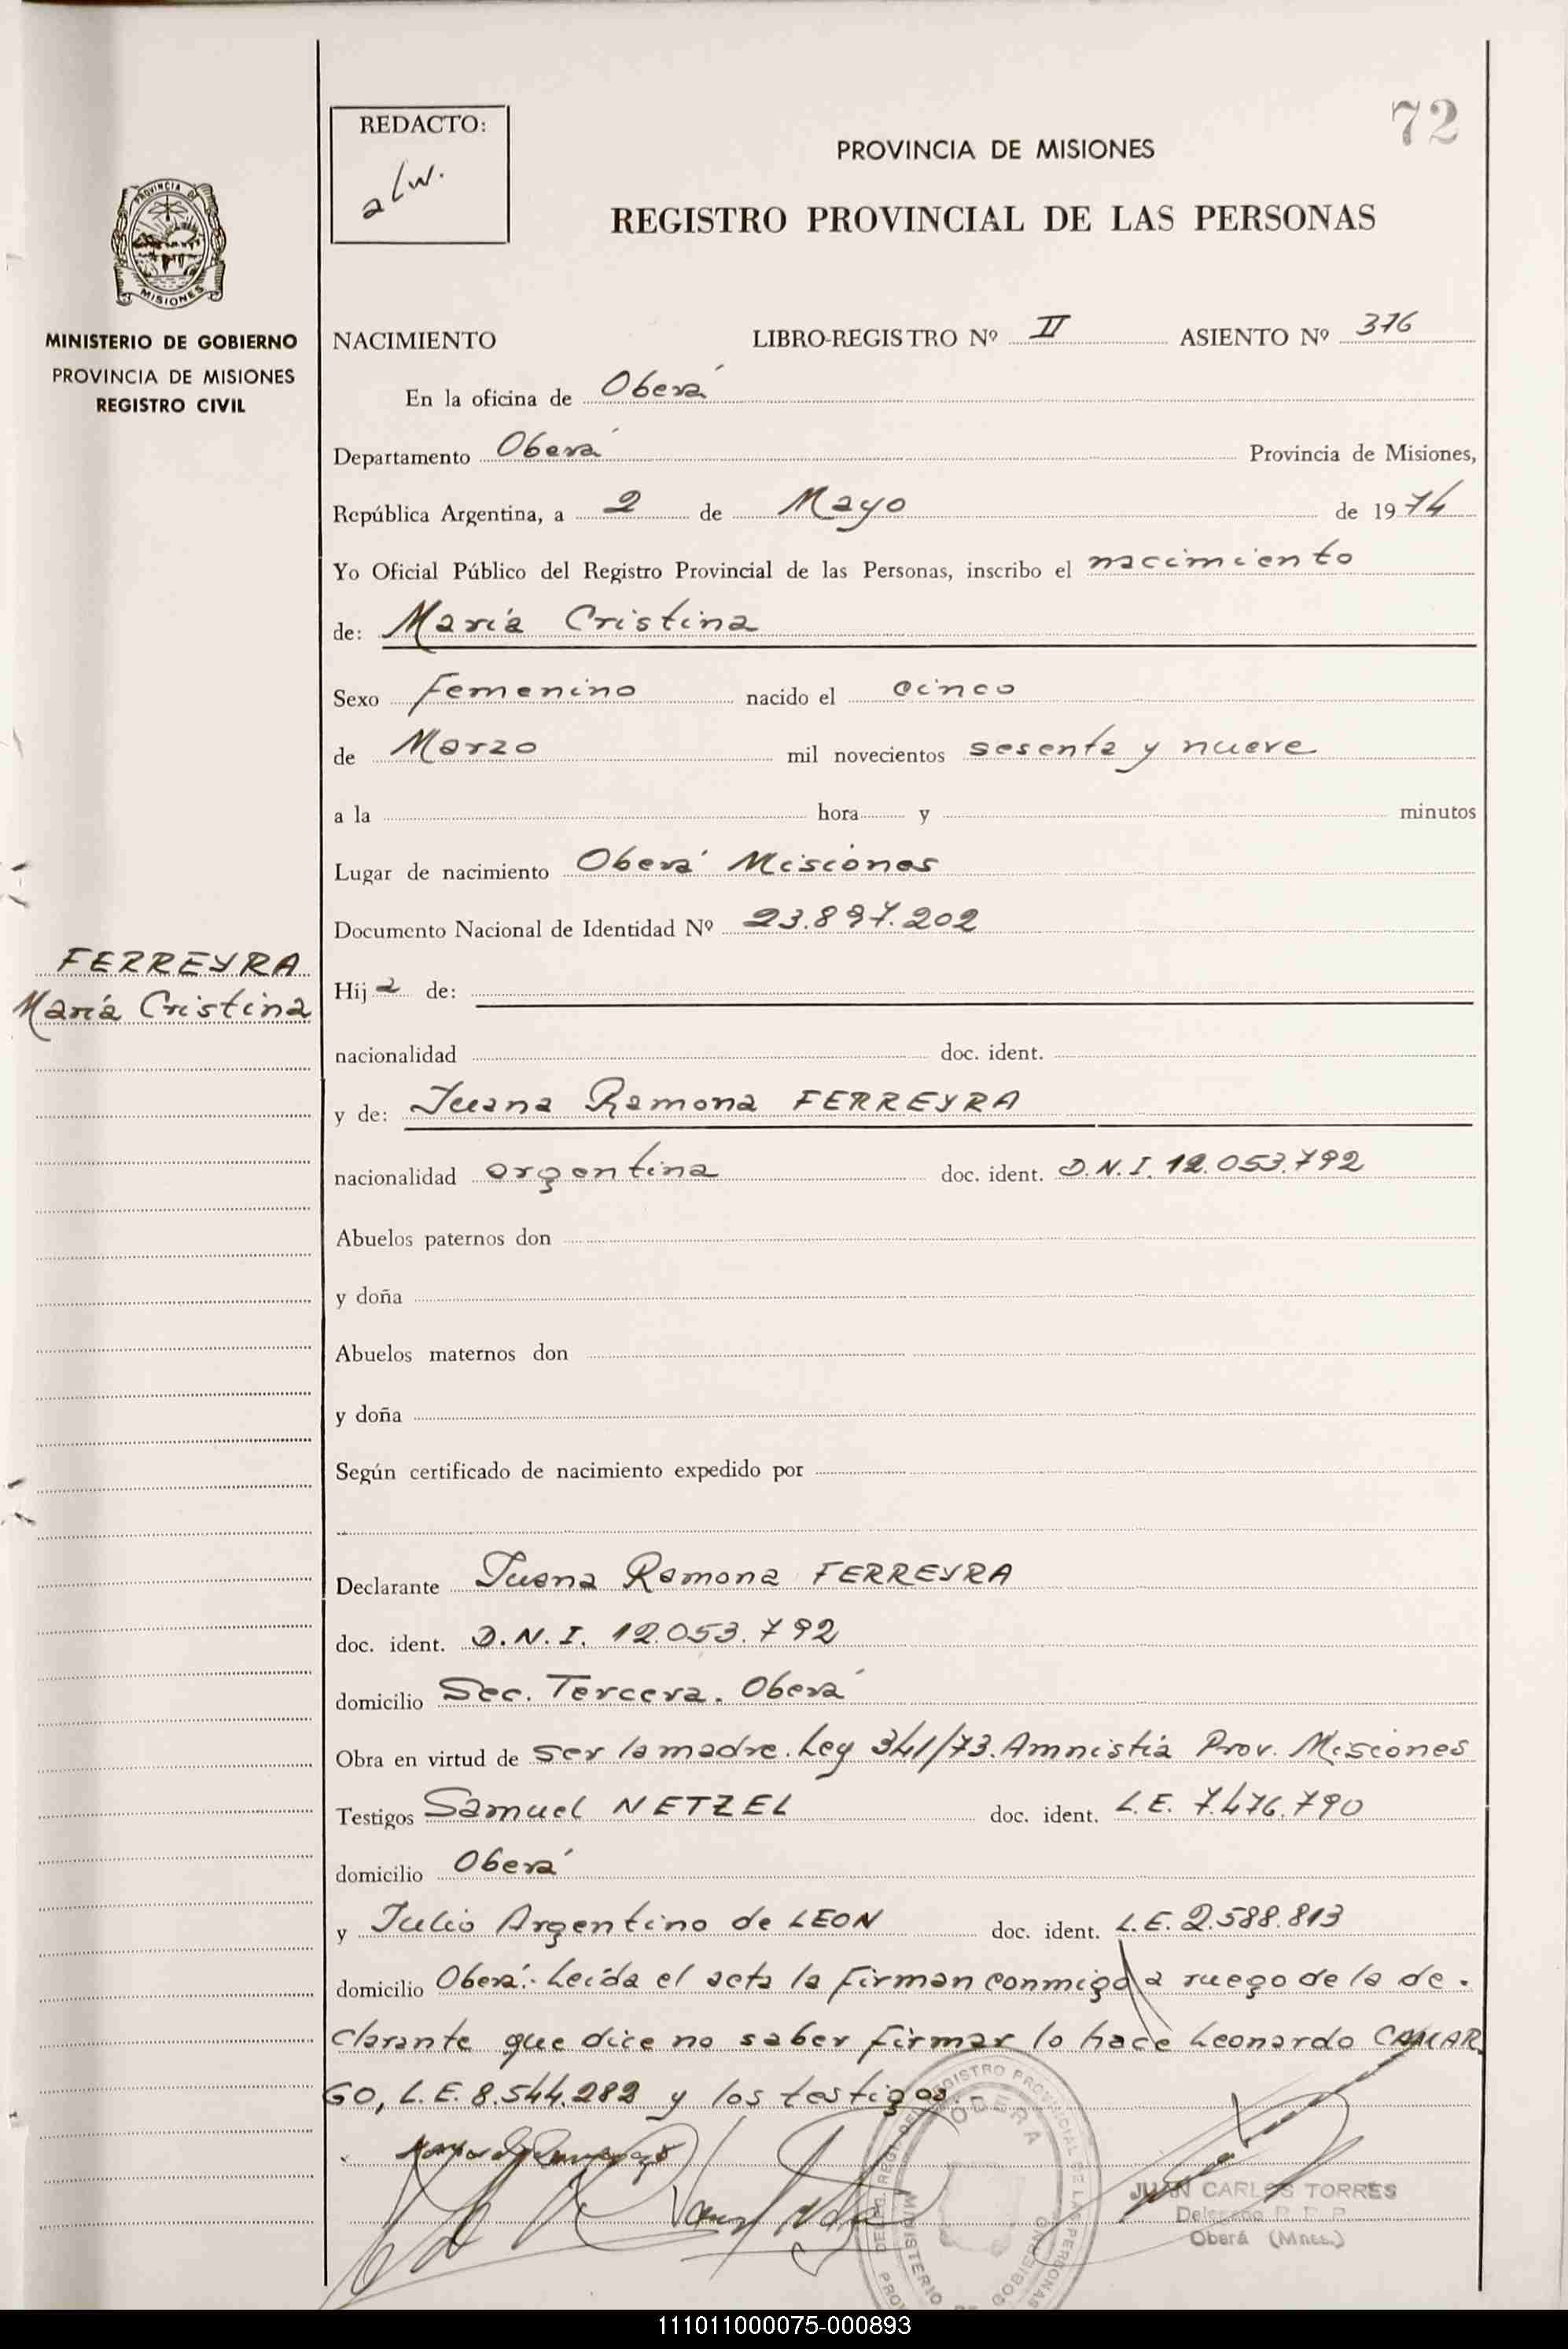 72
REDACTO:
alw.
PROVINCIA DE MISIONES
REGISTRO PROVINCIAL DE LAS PERSONAS
PROVINCIA DE
MISIONES
MINISTERIO DE GOBIERNO
PROVINCIA DE MISIONES
REGISTRO CIVIL
NACIMIENTO LIBRO-REGISTRO Nº II ASIENTO Nº 376
En la oficina de Oberá
Departamento Oberá Provincia de Misiones,
República Argentina, a 2 de Mayo de 1974
Yo Oficial Público del Registro Provincial de las Personas, inscribo el nacimiento
de: María Cristina
Sexo Femenino nacido el cinco
de Marzo mil novecientos sesenta y nueve
a la hora y minutos
Lugar de nacimiento Oberá Misiones
Documento Nacional de Identidad Nº 23.897.202
FERREYRA
María Cristina
Hija de:
nacionalidad doc. ident.
y de: Juana Ramona FERREYRA
nacionalidad argentina doc. ident. D.N.I. 12.053.792
Abuelos paternos don
y doña
Abuelos maternos don
y doña
Según certificado de nacimiento expedido por
Declarante Juana Ramona FERREYRA
doc. ident. D.N.I. 12.053.792
domicilio Sec. Tercera. Oberá
Obra en virtud de ser la madre. Ley 341/73. Amnistía Prov. Misiones
Testigos Samuel NETZEL doc. ident. L.E. 7.476.790
domicilio Oberá
y Julio Argentino de LEON doc. ident. L.E. 2.588.813
domicilio Oberá.- Leída el acta la firman conmigo a ruego de la de-
clarante que dice no saber firmar lo hace Leonardo CAMAR
GO, L.E. 8.544.282 y los testigos.
REGISTRO PROVINCIAL DE LAS PERSONAS
OBERA
MINISTERIO DE GOBIERNO
JUAN CARLOS TORRES
Delegado R.P.P.
Oberá (Mnes.)
111011000075-000893